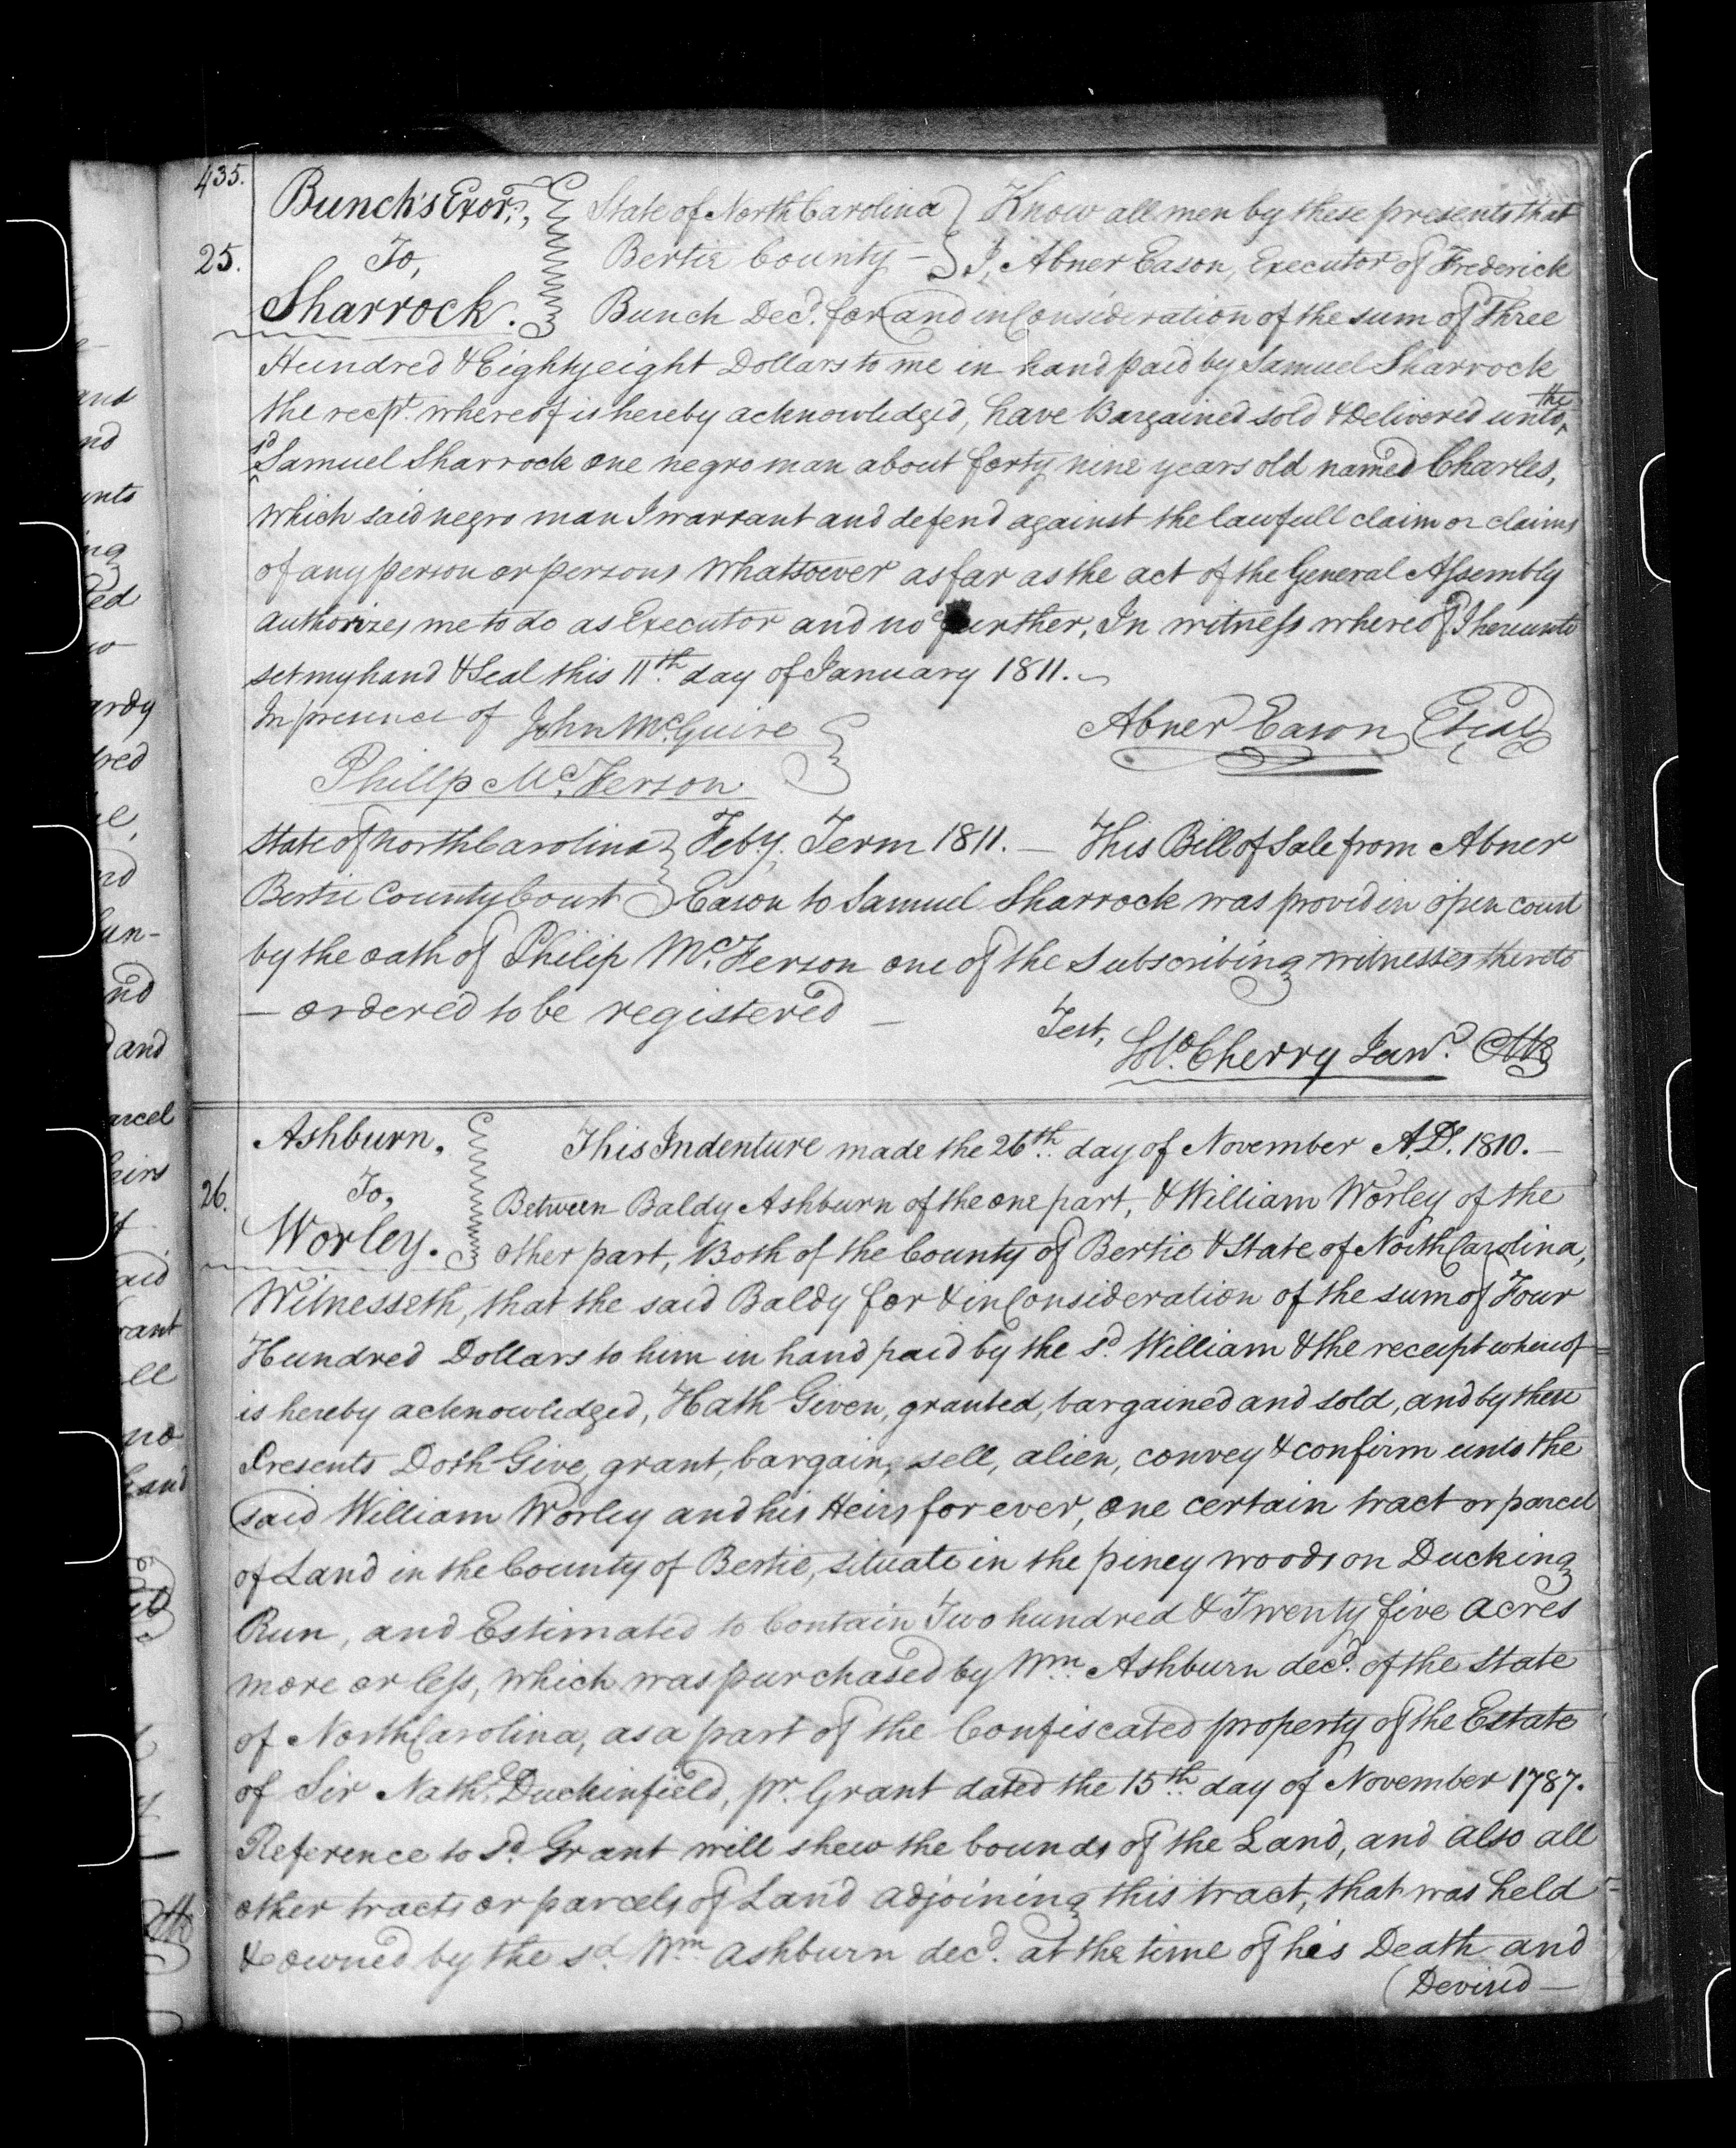 435.
Bunch's Exor., State of North Carolina } Know all men by these presents that
25. To, Bertie County - } I, Abner Eason, Executor of Frederick
Sharrock. Bunch Decd. for and in Consideration of the sum of three
Hundred & Eighty eight Dollars to me in hand paid by Samuel Sharrock
the recpt. whereof is hereby acknowledged, have Bargained sold & Delivered unto the
sd Samuel Sharrock one negro man about forty nine years old named Charles,
which said negro man I warrant and defend against the lawfull claim or claims
of any person or persons whatsoever as far as the act of the General Assembly
authorizes me to do as Executor and no further, In witness whereof I hereunto
set my hand & Seal this 11th day of January 1811.
In presence of John McGuire } Abner Eason Seal
Phillp McFerson
State of North Carolina } Feby. Term 1811. — This Bill of Sale from Abner
Bertie County Court } Eason to Samuel Sharrock was proved in open court
by the oath of Philip McFerson one of the Subscribing witnesses thereto
— ordered to be registered —
Test, Solo. Cherry Junr.
Ashburn, This Indenture made the 26th day of November A.D. 1810. —
26. To, Between Baldy Ashburn of the one part, & William Worley of the
Worley. other part, Both of the County of Bertie & State of North Carolina,
Witnesseth, that the said Baldy for & in Consideration of the sum of Four
Hundred Dollars to him in hand paid by the sd. William & the receipt whereof
is hereby acknowledged, Hath Given, granted, bargained and sold, and by these
Presents Doth Give, grant, bargain, sell, alien, convey & confirm unto the
said William Worley and his Heirs for ever, one certain tract or parcel
of Land in the County of Bertie, situate in the piney woods on Ducking
Run, and Estimated to Contain Two hundred & Twenty five acres
more or less, which was purchased by Wm. Ashburn decd. of the State
of North Carolina, as a part of the Confiscated property of the Estate
of Sir Nathl. Duckinfield, pr. Grant dated the 15th day of November 1787.
Reference to sd. Grant will shew the bounds of the Land, and also all
other tracts or parcels of Land adjoining this tract, that was held
& owned by the sd. Wm ashburn decd. at the time of his Death and
(Devised —